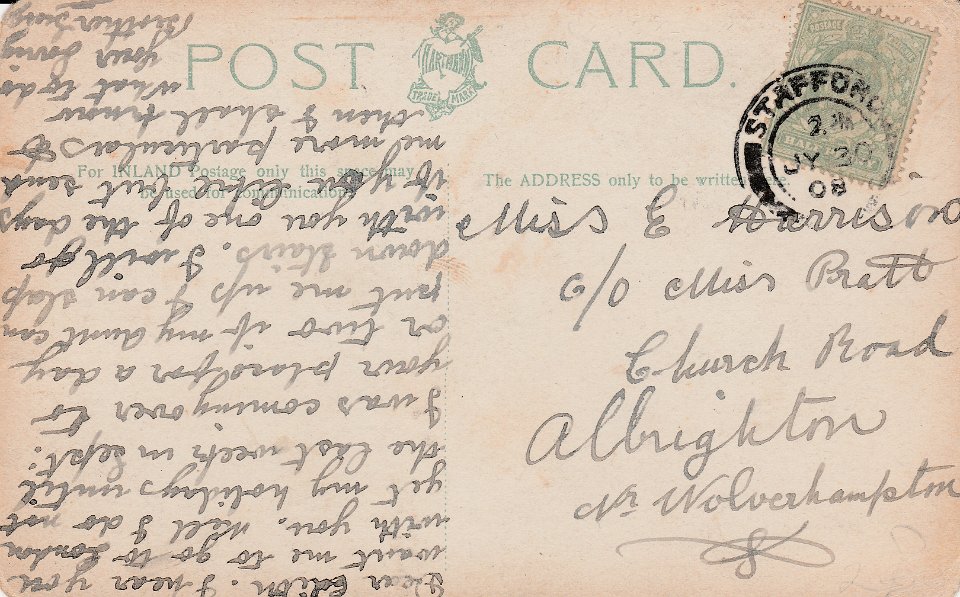 POST CARD.
HARTMANN
TRADE MARK
For INLAND Postage only this space may
be used for communication.
The ADDRESS only to be written
STAFFORD
JY 30
08
Miss E Harrison
c/o Miss Pratt
Church Road
Albrighton
Nr Wolverhampton
Dear Edith. I hear you
want me to go to London
with you. Well I do not
get my holidays until
the last week in Sept:
I was coming over to
your place for a day
or two if my Aunt can
put me up I can slap
down stairs. I will go
with you one of the days
if you like but send
me more particulars &
then I shall know
what to do
your loving
Brother